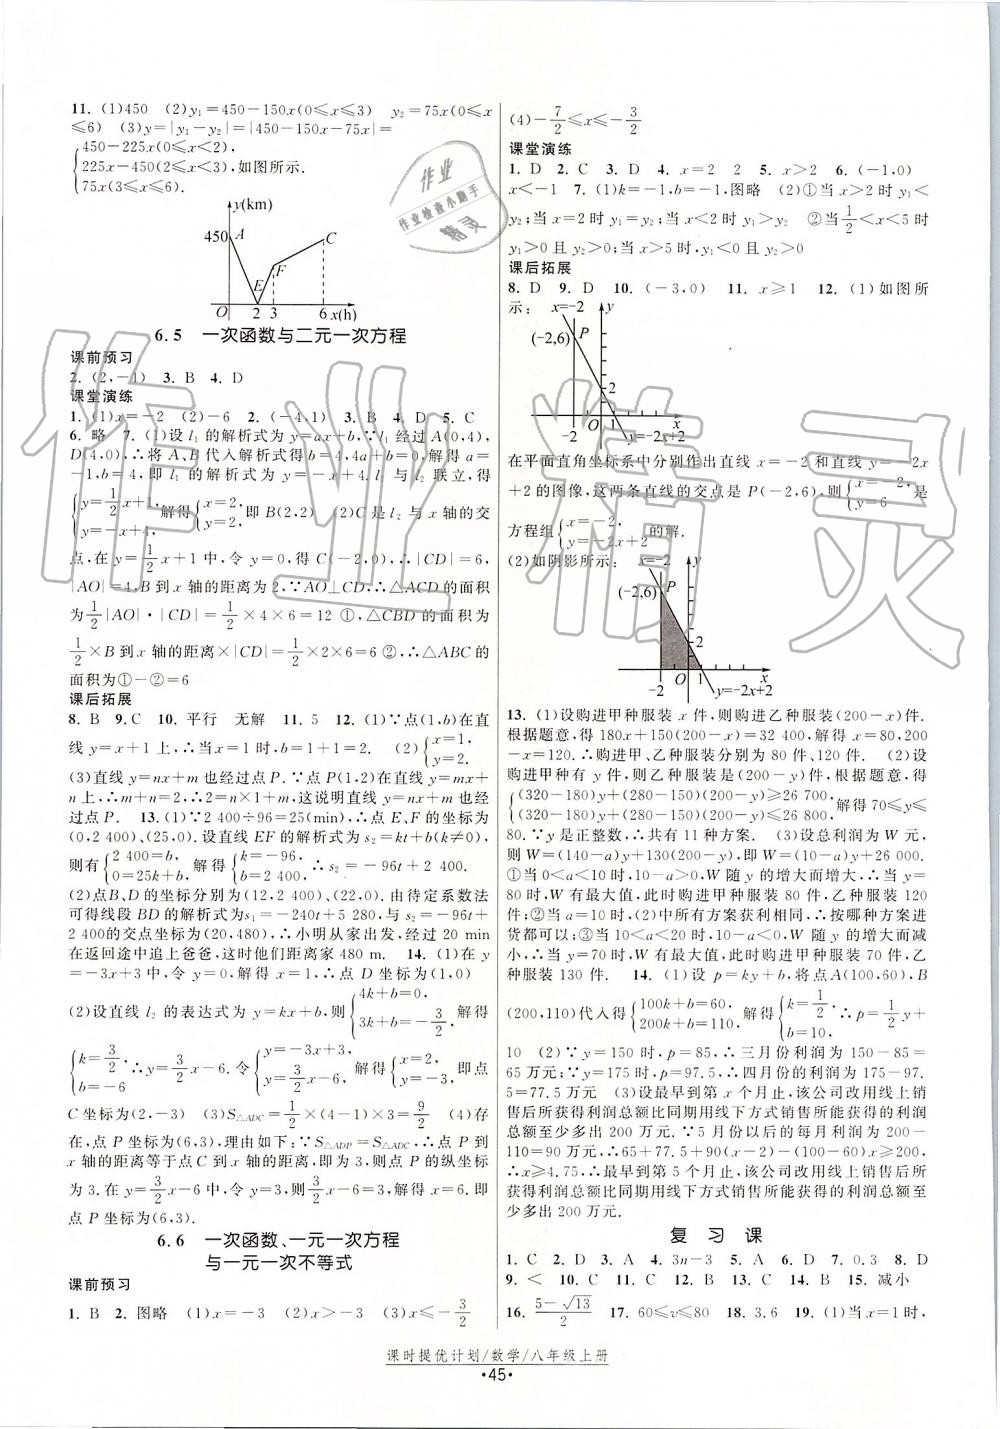 11. (1)450 (2)y₁=450-150x(0⩽x⩽3) y₂=75x(0⩽x
⩽6) (3)y=|y₁-y₂|=|450-150x-75x|=
{450-225x(0⩽x<2),
225x-450(2⩽x<3),如图所示.
75x(3⩽x⩽6).
y(km)
450 A
F C
E
O 2 3 6 x(h)
6.5 一次函数与二元一次方程
课前预习
2. (2,-1) 3. B 4. D
课堂演练
1. (1)x=-2 (2)-6 2. (-4,1) 3. B 4. D 5. C
6. 略 7. (1)设 l₁ 的解析式为 y=ax+b,∵l₁ 经过 A(0,4),
D(4,0),∴将 A、D 代入解析式得 b=4,4a+b=0,解得 a=
-1,b=4,即 l₁ 的解析式为 y=-x+4. l₁ 与 l₂ 联立,得
{y=1/2x+1, y=-x+4, 解得{x=2, y=2, 即 B(2,2) (2)C是 l₂ 与 x 轴的交
点,在 y=1/2x+1 中,令 y=0,得 C(-2,0),∴|CD|=6,
|AO|=4,B 到 x 轴的距离为 2,∵AO⊥CD,∴△ACD 的面积
为1/2|AO|·|CD|=1/2×4×6=12 ①,△CBD 的面积为
1/2×B到 x 轴的距离×|CD|=1/2×2×6=6 ②,∴△ABC 的
面积为①-②=6
课后拓展
8. B 9. C 10. 平行 无解 11. 5 12. (1)∵点(1,b)在直
线 y=x+1 上,∴当 x=1 时,b=1+1=2. (2){x=1, y=2.
(3)直线 y=nx+m 也经过点 P.∵点 P(1,2)在直线 y=mx+
n 上,∴m+n=2,∴2=n+m,这说明直线 y=nx+m 也经
过点 P. 13. (1)∵2 400÷96=25(min),∴点 E、F 的坐标为
(0,2 400),(25,0). 设直线 EF 的解析式为 s₂=kt+b(k≠0),
则有{2 400=b, 0=25k+b, 解得{k=-96, b=2 400, ∴s₂=-96t+2 400.
(2)点 B、D 的坐标分别为(12,2 400),(22,0). 由待定系数法
可得线段 BD 的解析式为 s₁=-240t+5 280,与 s₂=-96t+
2 400的交点坐标为(20,480),∴小明从家出发,经过 20 min
在返回途中追上爸爸,这时他们距离家 480 m. 14. (1)在 y=
-3x+3 中,令 y=0,解得 x=1,∴点 D 坐标为(1,0)
(2)设直线 l₂ 的表达式为 y=kx+b,则{4k+b=0, 3k+b=-3/2, 解得
{k=3/2, b=-6 ∴y=3/2x-6. 令{y=-3x+3, y=3/2x-6, 解得{x=2, y=-3, 即点
C 坐标为(2,-3) (3)S△ADC=1/2×(4-1)×3=9/2 (4)存
在,点 P 坐标为(6,3),理由如下:∵S△ADP=S△ADC,∴点 P 到
x 轴的距离等于点 C 到 x 轴的距离,即为 3,则点 P 的纵坐标
为 3. 在 y=3/2x-6 中,令 y=3,则3/2x-6=3,解得 x=6. 即
点 P 坐标为(6,3).
6.6 一次函数、一元一次方程
与一元一次不等式
课前预习
1. B 2. 图略 (1)x=-3 (2)x>-3 (3)x⩽-3/2
(4)-7/2⩽x⩽-3/2
课堂演练
1. D 2. C 3. D 4. x=2 2 5. x>2 6. (-1,0)
x<-1 7. (1)k=-1,b=-1,图略 (2)①当 x>2 时 y₁<
y₂;当 x=2 时 y₁=y₂;当 x<2 时 y₁>y₂ ②当1/2<x<5时
y₁>0 且 y₂>0;当 x>5 时,y₁>0 且 y₂>0
课后拓展
8. D 9. D 10. (-3,0) 11. x⩾1 12. (1)如图所
示: x=-2 y
(-2,6) P
2
-2 O 1 x
y=-2x+2
在平面直角坐标系中分别作出直线 x=-2 和直线 y=-2x
+2 的图像,这两条直线的交点是 P(-2,6),则{x=-2, y=6 是
方程组{x=-2, y=-2x+2 的解.
(2)如阴影所示: x=-2 y
(-2,6) P
2
-2 O 1 x
y=-2x+2
13. (1)设购进甲种服装 x 件,则购进乙种服装(200-x)件.
根据题意,得 180x+150(200-x)=32 400,解得 x=80,
200-x=120. ∴购进甲、乙种服装分别为 80 件、120 件. (2)设
购进甲种有 y 件,则乙种服装是(200-y)件,根据题意,得
{(320-180)y+(280-150)(200-y)⩾26 700,
(320-180)y+(280-150)(200-y)⩽26 800, 解得 70⩽y⩽
80. ∵y 是正整数,∴共有 11 种方案. (3)设总利润为 W 元,
则 W=(140-a)y+130(200-y),即 W=(10-a)y+26 000.
①当 0<a<10 时,10-a>0,W 随 y 的增大而增大,∴当 y=
80 时,W 有最大值,此时购进甲种服装 80 件,乙种服装 120
件;②当 a=10 时,(2)中所有方案获利相同,∴按哪种方案进
货都可以;③当 10<a<20 时,10-a<0,W 随 y 的增大而减
小,当 y=70 时,W 有最大值,此时购进甲种服装 70 件,乙
种服装 130 件. 14. (1)设 p=ky+b,将点 A(100,60),B
(200,110)代入得{100k+b=60, 200k+b=110, 解得{k=1/2, b=10, ∴p=1/2y+
10 (2)∵y=150 时,p=85,∴三月份利润为 150-85=
65 万元. ∵y=175 时,p=97.5,∴四月份的利润为 175-97.
5=77.5 万元 (3)设最早到第 x 个月止,该公司改用线上销
售后所获得利润总额比同期用线下方式销售所能获得的利润
总额至少多出 200 万元. ∵5 月份以后的每月利润为 200
-110=90 万元,∴65+77.5+90(x-2)-40x⩾200,
∴x⩾4.75,∴最早到第 5 个月止,该公司改用线上销售后所
获得利润总额比同期用线下方式销售所能获得的利润总额至
少多出 200 万元.
复习课
1. C 2. D 3. A 4. 3n-3 5. C 6. D 7. 0.3 8. D
9. < 10. C 11. C 12. C 13. D 14. B 15. 减小
16. (5-√13)/2 17. 60⩽v⩽80 18. 3.6 19. (1)当 x=1 时,
课时提优计划/数学/八年级上册
·45·
作业精灵
作业
作业检查小助手
精灵